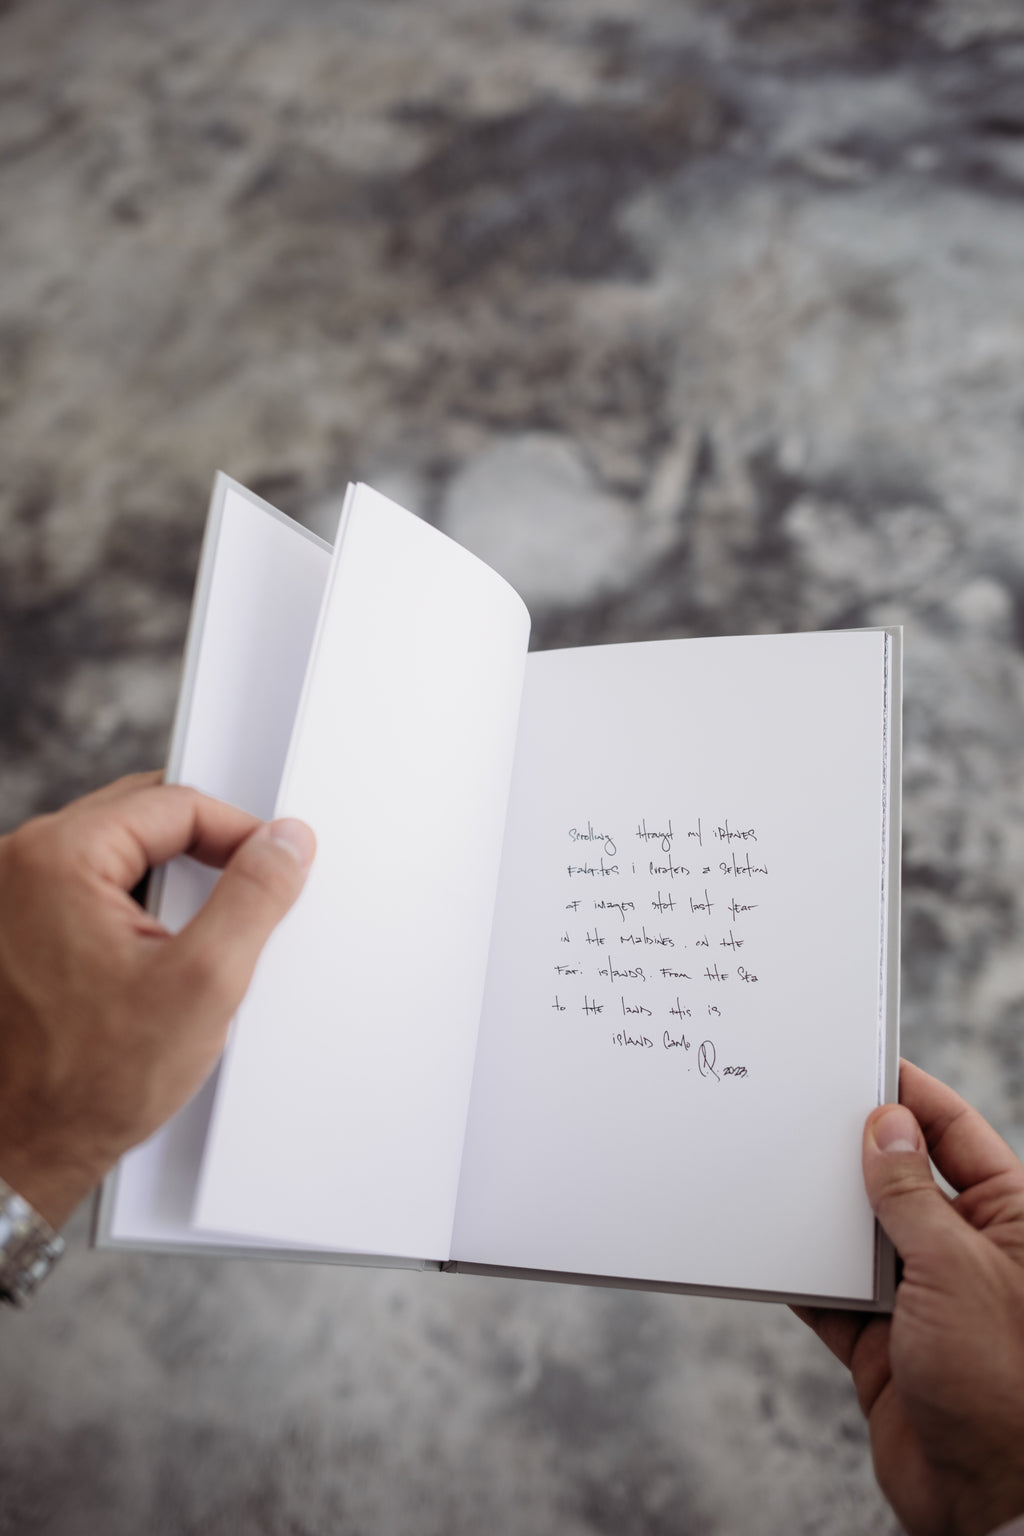 Scrolling through my iPhones
Favorites i curated a selection
of images shot last year
in the Maldives. on the
Fari islands. From the Sea
to the land this is
island Camo
2023.